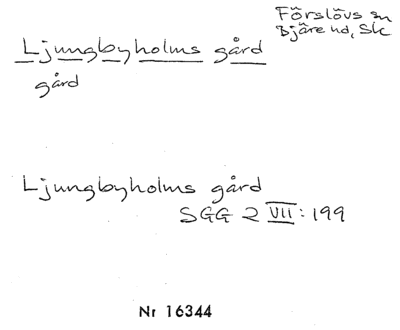 Förslövs sn
Bjäre hd, Sk
Ljungbyholms gård
gård
Ljungbyholms gård
SGG 2 VII: 199
Nr 16344